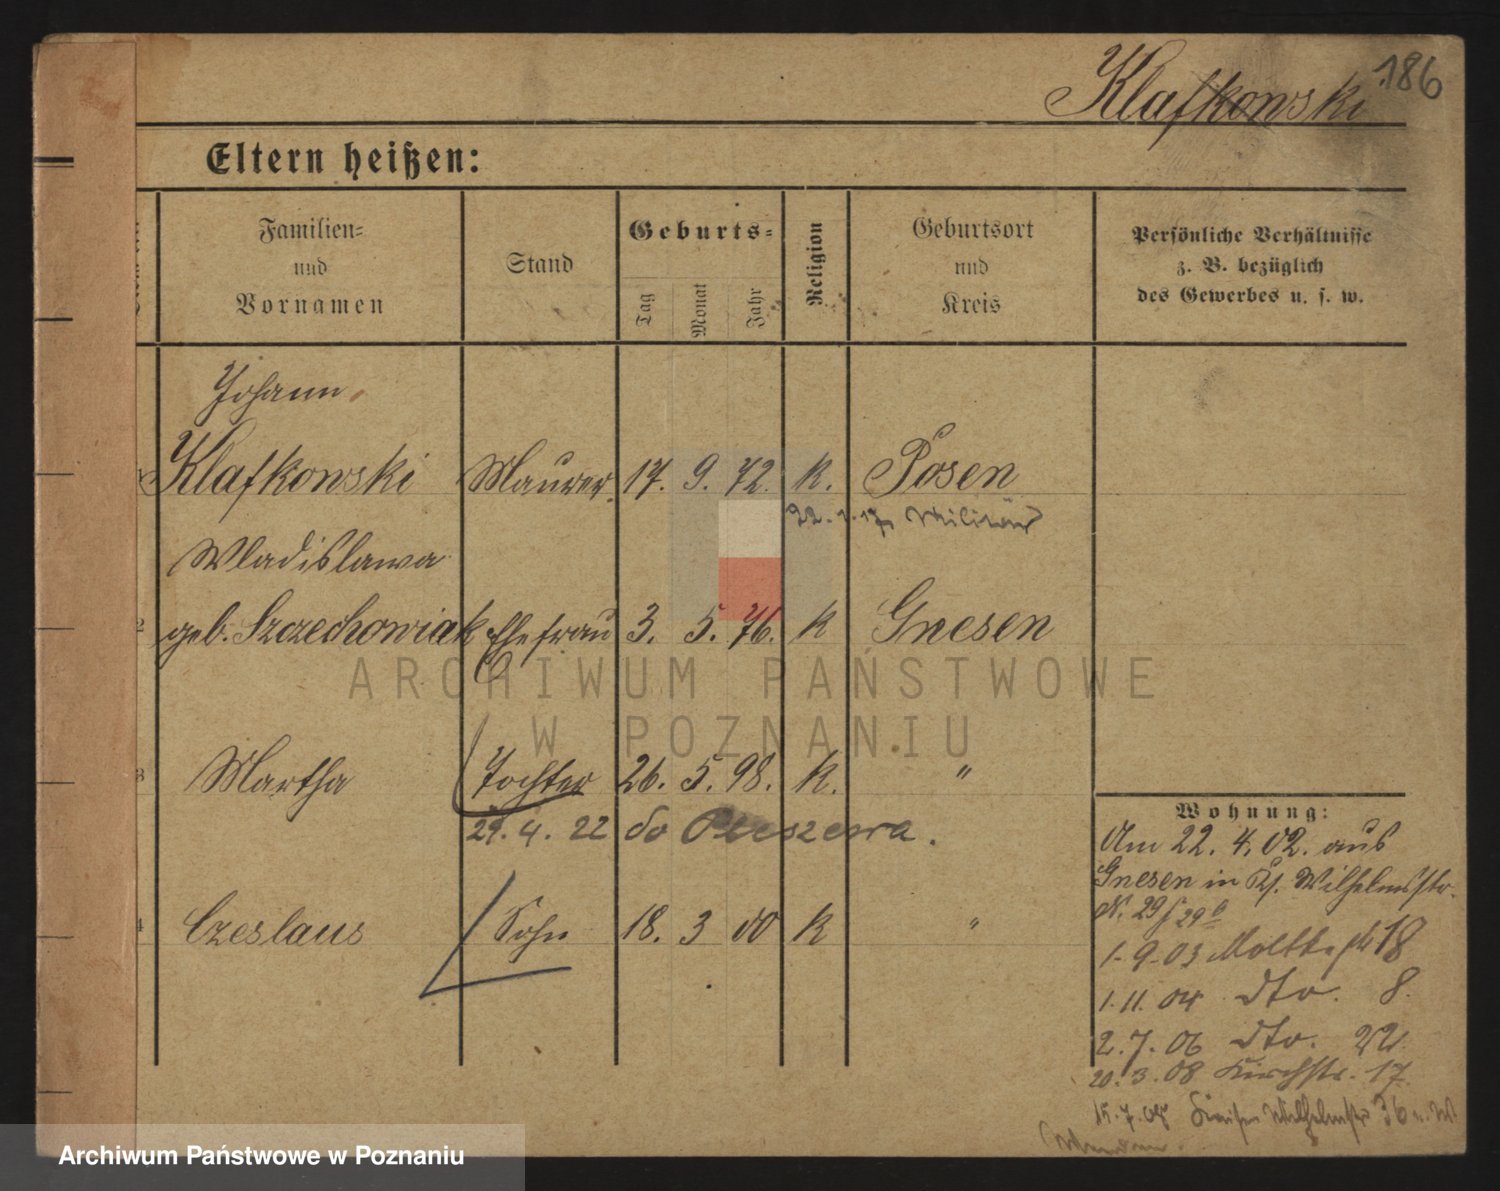 186
Klafkowski
Eltern heißen:
Familien=
und
Vornamen
Stand
Geburts=
Tag
Monat
Jahr
Religion
Geburtsort
und
Kreis
Persönliche Verhältnisse
z. B. bezüglich
des Gewerbes u. s. w.
Johann
Klafkowski Maurer 17. 9. 72. k. Posen
Militär
Wladislawa
2 geb. Szczechowiak Ehefrau 3. 5. 76. k Gnesen
3 Martha Tochter 26. 5. 98. k. "
29. 4. 22 do Pleszewa.
4 Czeslaus Sohn 18. 3 00 k "
Wohnung:
Am 22. 4. 02. aus
Gnesen in Wilhelmstr.
N. 29
1.9.03 Moltkestr 18
1.11.04 dto. 8.
2.7.06 dto. 22.
20.3.08 Kirchstr. 17
15.7.08 Kaiser Wilhelmstr 36
ARCHIWUM PAŃSTWOWE
W POZNANIU
Archiwum Państwowe w Poznaniu